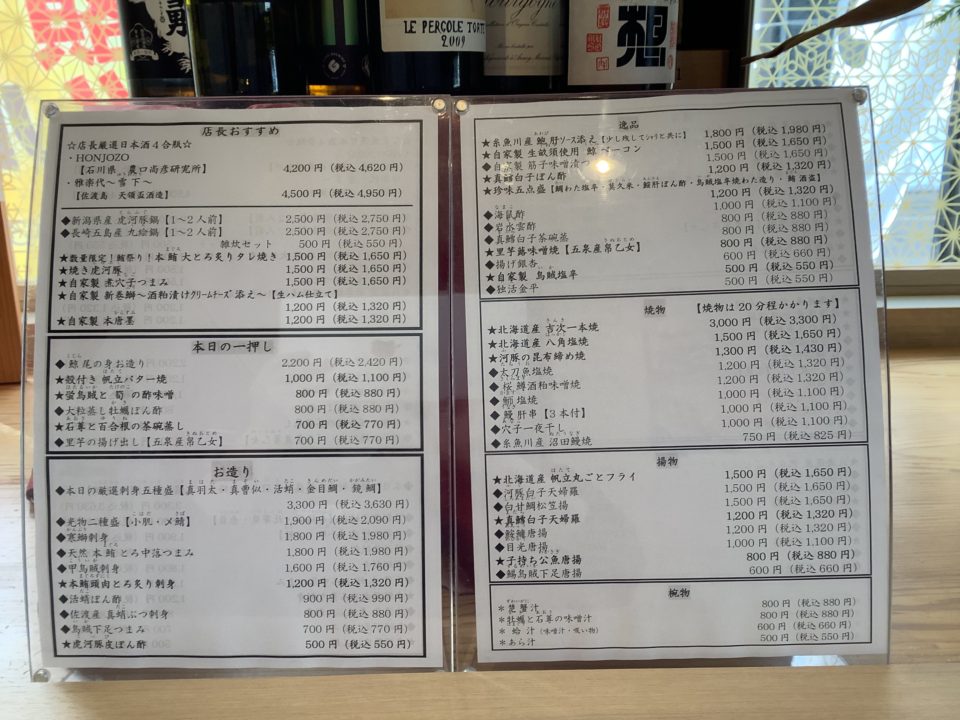 LE PERGOLE TORTE
2009
店長おすすめ
☆店長厳選日本酒4合瓶☆
・HONJOZO
【石川県 農口尚彦研究所】 4,200円（税込4,620円）
・雅楽代～雪下～
【佐渡島 天領盃酒造】 4,500円（税込4,950円）
◆新潟県産 虎河豚鍋【1～2人前】 2,500円（税込2,750円）
◆長崎五島産 九絵鍋【1～2人前】 2,500円（税込2,750円）
雑炊セット 500円（税込550円）
★数量限定！鮪祭り！本鮪 大とろ炙りタレ焼き 1,500円（税込1,650円）
★焼き虎河豚 1,500円（税込1,650円）
★自家製 煮穴子つまみ 1,500円（税込1,650円）
★自家製 新巻鰤～酒粕漬けクリームチーズ添え～【生ハム仕立て】
1,200円（税込1,320円）
★自家製 本唐墨 1,200円（税込1,320円）
本日の一押し
◆鯨 尾の身お造り 2,200円（税込2,420円）
★殻付き 帆立バター焼 1,000円（税込1,100円）
★蛍烏賊と 筍 の酢味噌 800円（税込880円）
◆大粒蒸し牡蠣ぽん酢 800円（税込880円）
★石蓴と百合根の茶碗蒸し 700円（税込770円）
◆里芋の揚げ出し【五泉産帛乙女】 700円（税込770円）
お造り
◆本日の厳選刺身五種盛【真羽太・真曹似・活蛸・金目鯛・鏡鯛】
3,300円（税込3,630円）
◆光物二種盛【小肌・〆鯖】 1,900円（税込2,090円）
◆寒鰤刺身 1,800円（税込1,980円）
◆天然 本鮪 とろ中落つまみ 1,800円（税込1,980円）
◆甲烏賊刺身 1,600円（税込1,760円）
★本鮪頭肉とろ炙り刺身 1,200円（税込1,320円）
◆活蛸ぽん酢 900円（税込990円）
◆佐渡産 真蛸ぶつ刺身 800円（税込880円）
◆烏賊下足つまみ 700円（税込770円）
★虎河豚皮ぽん酢 500円（税込550円）
逸品
★糸魚川産 鮑 肝ソース添え【少し残してシャリと共に】 1,800円（税込1,980円）
★自家製 生畝須使用 鯨 ベーコン 1,500円（税込1,650円）
◆自家製 筋子味噌漬つ 1,500円（税込1,650円）
★真鱈白子ぽん酢 1,200円（税込1,320円）
★珍味五点盛【鯛わた塩辛・莫久来・鮟肝ぽん酢・烏賊塩辛焼わた造り・鮪酒盗】
1,200円（税込1,320円）
◆海鼠酢 1,000円（税込1,100円）
◆岩水雲酢 800円（税込880円）
◆真鱈白子茶碗蒸 800円（税込880円）
★里芋蕗味噌焼【五泉産帛乙女】 800円（税込880円）
◆揚げ銀杏 600円（税込660円）
★自家製 烏賊塩辛 500円（税込550円）
◆独活金平 500円（税込550円）
焼物 【焼物は20分程かかります】
★北海道産 吉次一本焼 3,000円（税込3,300円）
★北海道産 八角塩焼 1,500円（税込1,650円）
★河豚の昆布締め焼 1,300円（税込1,430円）
◆太刀魚塩焼 1,200円（税込1,320円）
◆桜鱒酒粕味噌焼 1,200円（税込1,320円）
◆鰤塩焼 1,000円（税込1,100円）
◆鰻 肝串【3本付】 1,000円（税込1,100円）
◆穴子一夜干し 1,000円（税込1,100円）
◆糸魚川産 沼田鰻焼 750円（税込825円）
揚物
★北海道産 帆立丸ごとフライ 1,500円（税込1,650円）
◆河豚白子天婦羅 1,500円（税込1,650円）
◆白甘鯛松笠揚 1,500円（税込1,650円）
★真鱈白子天婦羅 1,200円（税込1,320円）
◆鮟鱇唐揚 1,200円（税込1,320円）
◆目光唐揚 1,000円（税込1,100円）
★子持ち公魚唐揚 800円（税込880円）
◆鯣烏賊下足唐揚 600円（税込660円）
椀物
＊楚蟹汁 800円（税込880円）
＊牡蠣と石蓴の味噌汁 800円（税込880円）
＊蛤 汁（味噌汁・吸い物） 600円（税込660円）
＊あら汁 500円（税込550円）